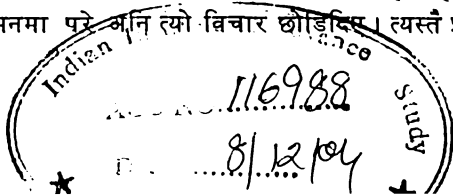 मनमा परे अनि त्यो विचार छोडिदिए। त्यस्तै
Indian
nce Study
No. 116988
8/12/04